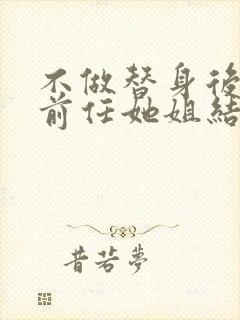 不做替身後
前任她姐結
昔若夢